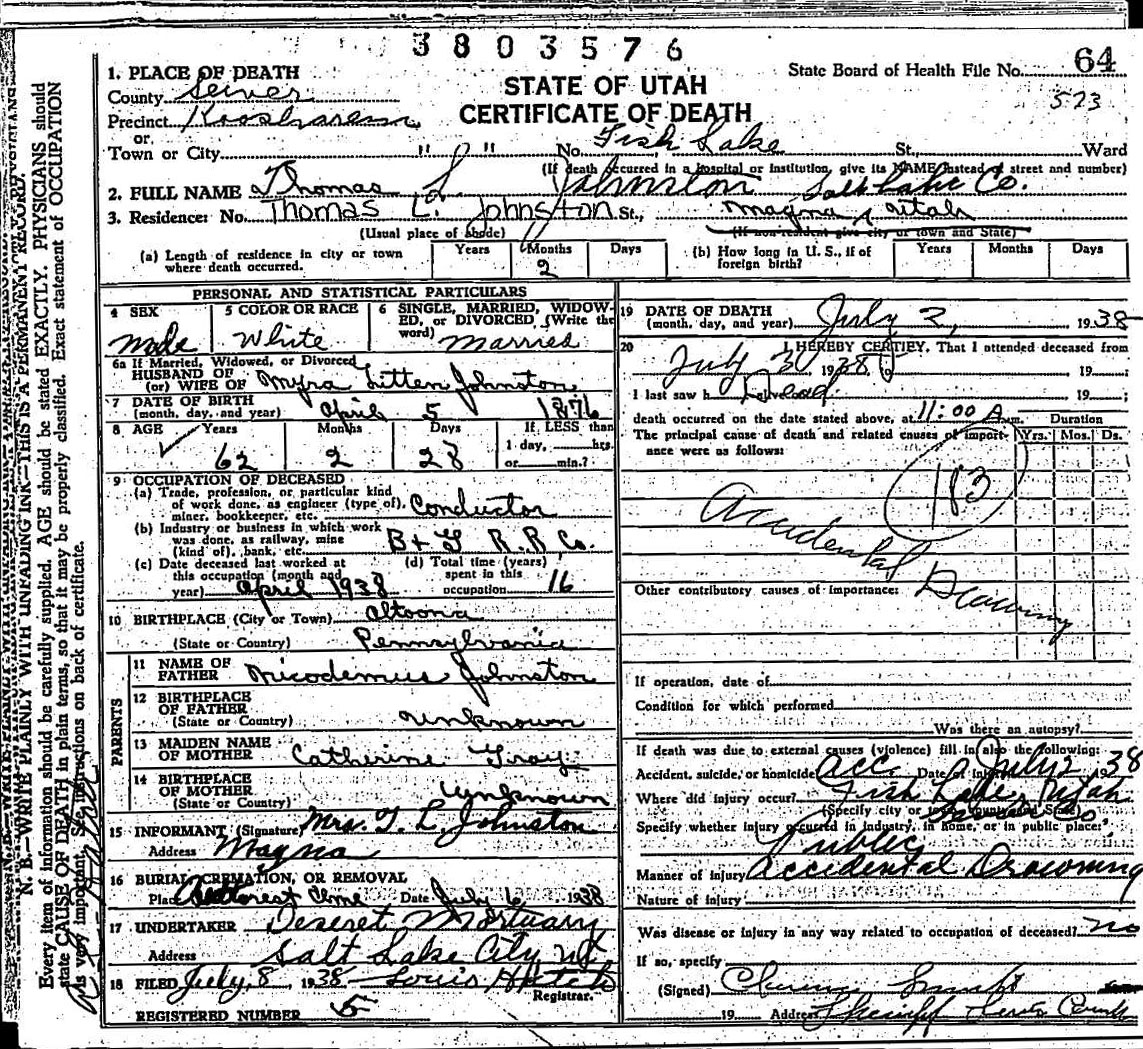 3803576
64
State Board of Health File No.
523
STATE OF UTAH
CERTIFICATE OF DEATH
1. PLACE OF DEATH
County Sevier
Precinct Koosharem
or
Town or City " " No. Fish Lake St., Ward
(If death occurred in a hospital or institution, give its NAME instead of street and number)
2. FULL NAME Thomas L. Johnston Salt Lake Co.
3. Residence: No. Thomas L. Johnston St., Magna, Utah
(Usual place of abode) (If non-resident give city or town and State)
(a) Length of residence in city or town where death occurred. Years Months 2 Days
(b) How long in U. S., if of foreign birth? Years Months Days
PERSONAL AND STATISTICAL PARTICULARS
4 SEX Male
5 COLOR OR RACE White
6 SINGLE, MARRIED, WIDOWED, or DIVORCED, (Write the word) Married
6a If Married, Widowed, or Divorced
HUSBAND OF
(or) WIFE OF Myra Litten Johnston
7 DATE OF BIRTH
(month, day, and year) April 5 1876
8 AGE Years 62 Months 2 Days 28 If LESS than 1 day, hrs. or min.?
9 OCCUPATION OF DECEASED
(a) Trade, profession, or particular kind of work done, as engineer (type of), miner, bookkeeper, etc. Conductor
(b) Industry or business in which work was done, as railway, mine (kind of), bank, etc. B + G R.R. Co.
(c) Date deceased last worked at this occupation (month and year) April 1938
(d) Total time (years) spent in this occupation 16
10 BIRTHPLACE (City or Town) Altoona
(State or Country) Pennsylvania
PARENTS
11 NAME OF FATHER Nicodemus Johnston
12 BIRTHPLACE OF FATHER
(State or Country) Unknown
13 MAIDEN NAME OF MOTHER Catherine Gray
14 BIRTHPLACE OF MOTHER
(State or Country) Unknown
15 INFORMANT (Signature) Mrs. T. L. Johnston
Address Magna
16 BURIAL, CREMATION, OR REMOVAL
Place Date July 6 1938
17 UNDERTAKER Deseret Mortuary
Address Salt Lake City Ut
18 FILED July 8 1938 Louis
Registrar.
REGISTERED NUMBER 5
19 DATE OF DEATH
(month, day, and year) July 2, 1938
20 I HEREBY CERTIFY, That I attended deceased from
July 3 1938 to 19 ;
I last saw h Dead 19 ;
death occurred on the date stated above, at 11:00 A m.
The principal cause of death and related causes of importance were as follows:
Duration
Yrs. Mos. Ds.
183
Accidental Drowning
Other contributory causes of importance:
If operation, date of
Condition for which performed
Was there an autopsy?
If death was due to external causes (violence) fill in also the following:
Accident, suicide, or homicide Acc. Date of injury July 2 1938
Where did injury occur? Fish Lake, Utah
(Specify city or town, county and State) Sevier Co
Specify whether injury occurred in industry, in home, or in public place:
Public
Manner of injury Accidental Drowning
Nature of injury
Was disease or injury in any way related to occupation of deceased? no
If so, specify
(Signed)
19 Address
N. B.—WRITE PLAINLY WITH UNFADING INK—THIS IS A PERMANENT RECORD.
Every item of information should be carefully supplied. AGE should be stated EXACTLY. PHYSICIANS should
state CAUSE OF DEATH in plain terms, so that it may be properly classified. Exact statement of OCCUPATION
is very important. See instructions on back of certificate.